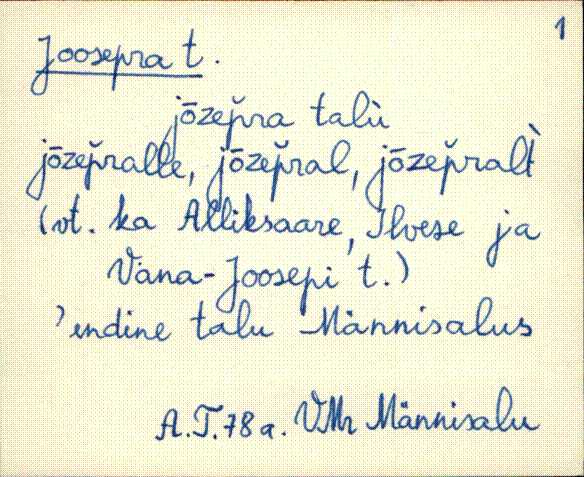 1
Joosepra t.
jōzep̆ra talù
jōzep̆ralle, jōzep̆ral, jōzep̆ralt̀
(vt. ka Alliksaare, Ilvese ja
Vana-Joosepi t.)
'endine talu Männisalus
A.T.78a. VMr Männisalu